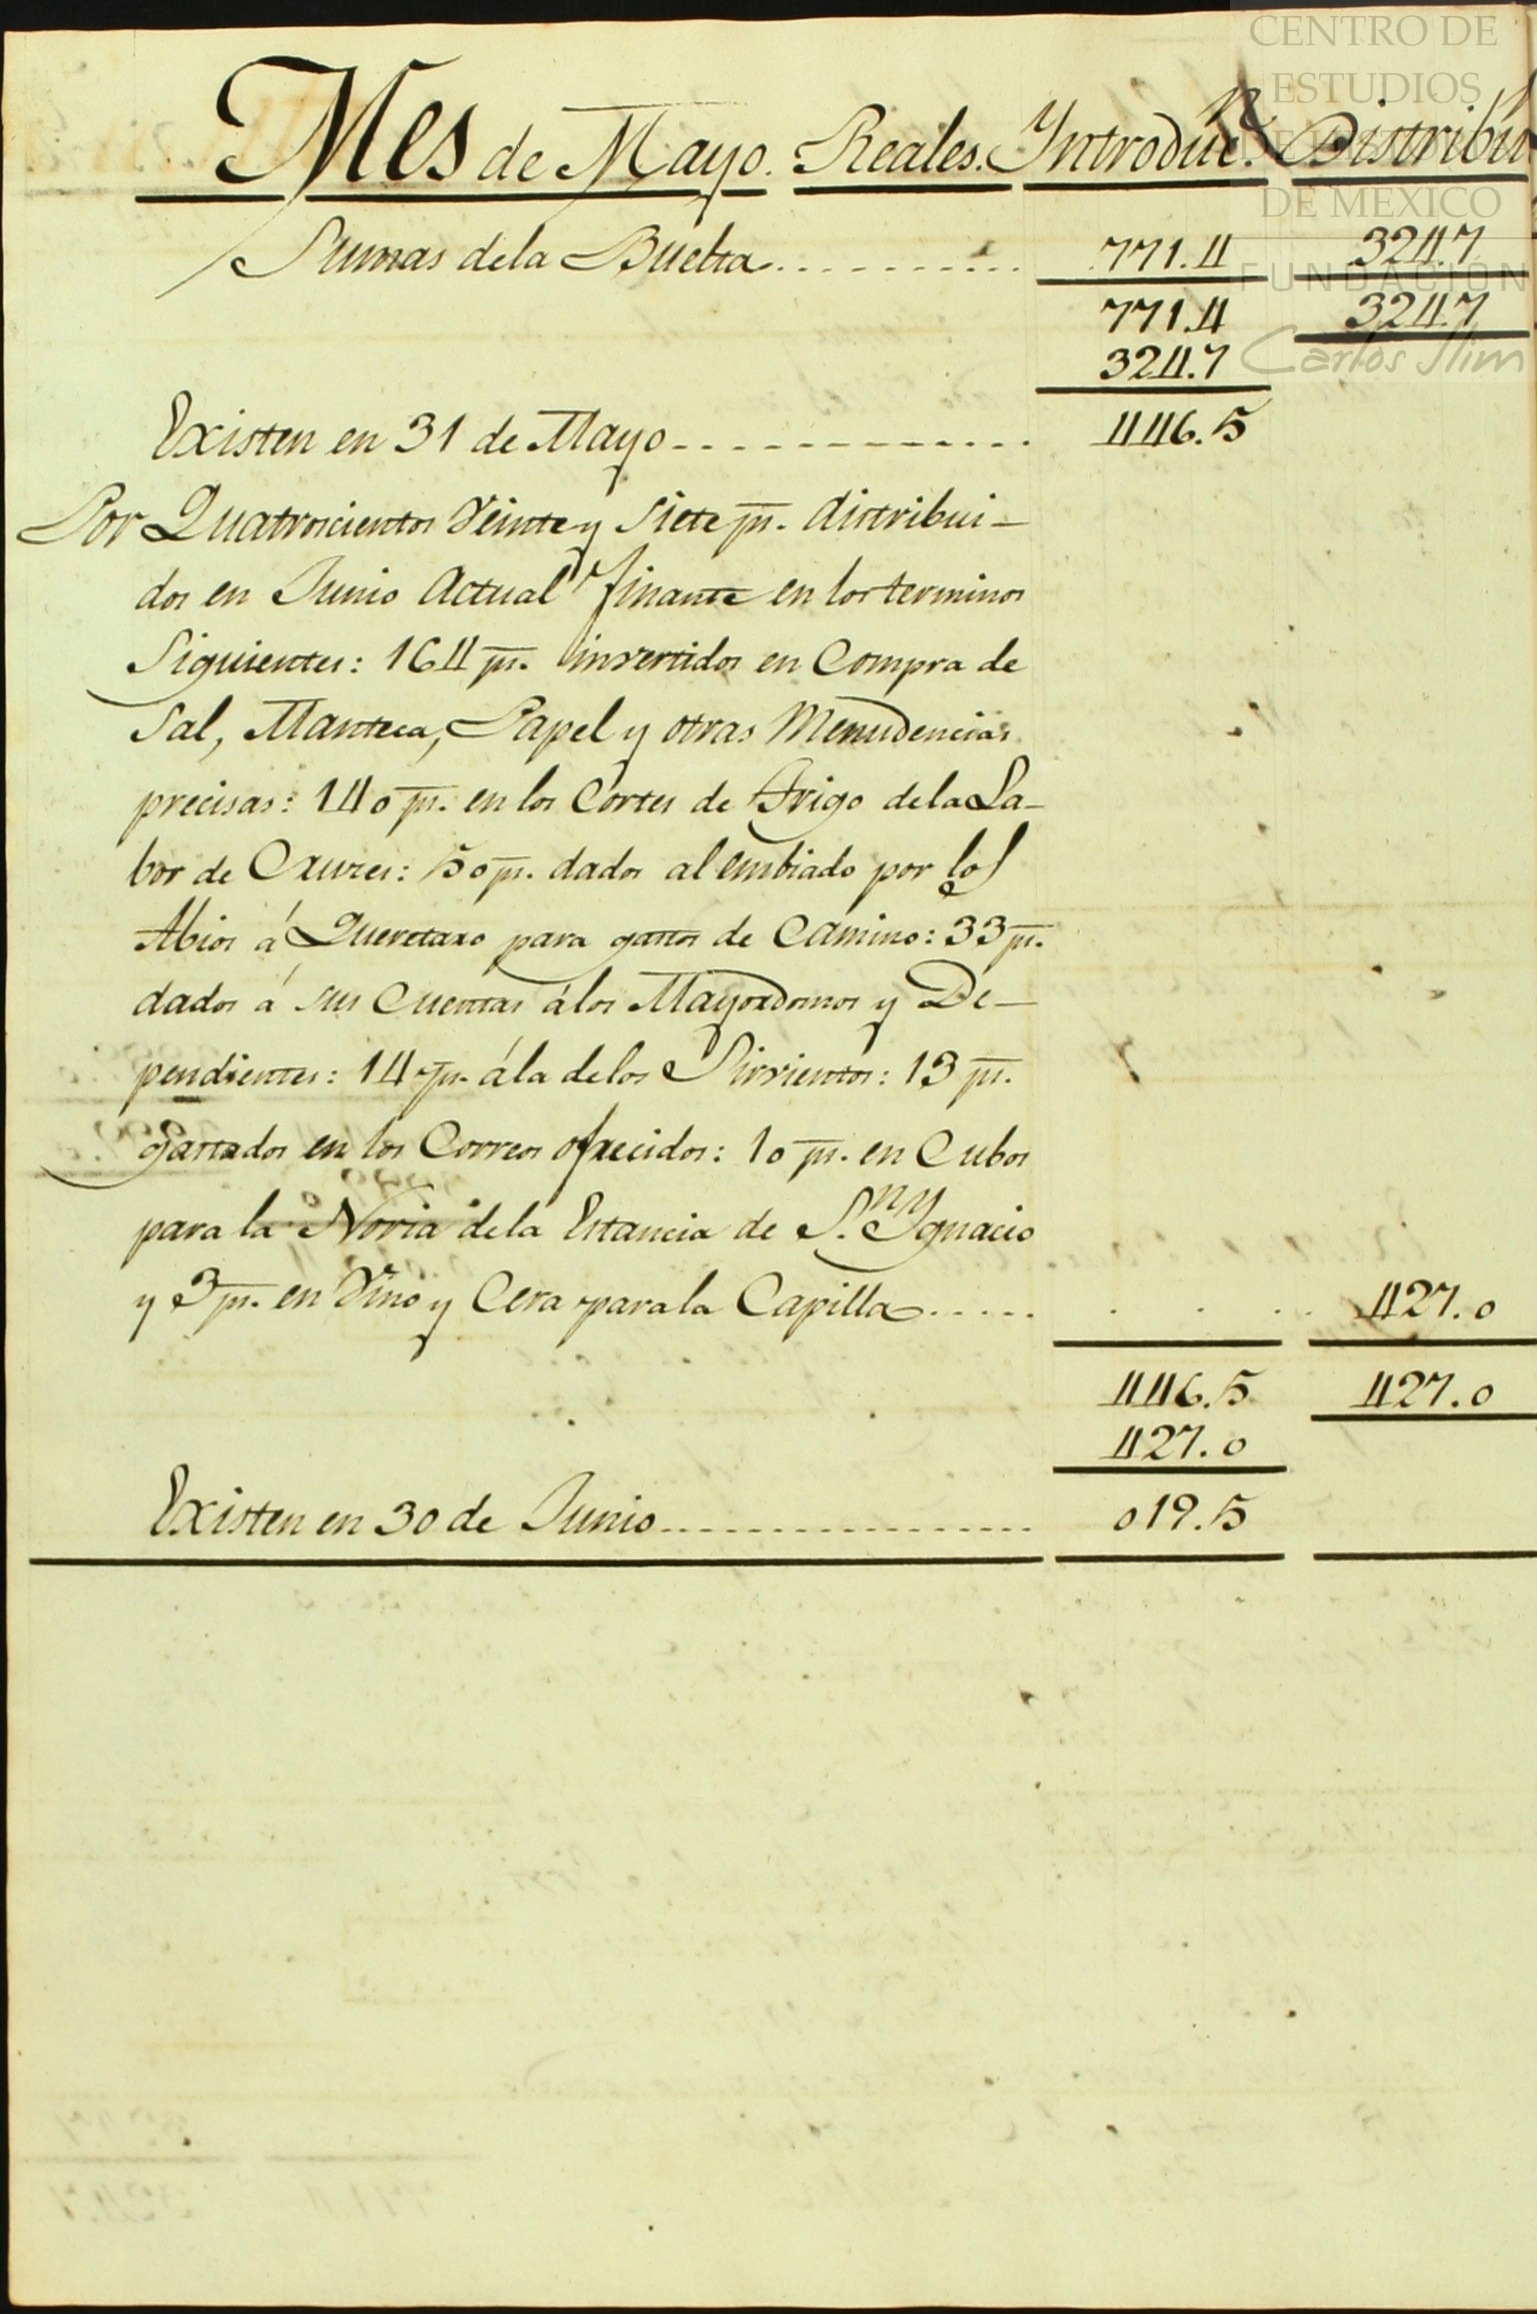 CENTRO DE
ESTUDIOS
DE HISTORIA
DE MEXICO
FUNDACIÓN
Carlos Slim
Mes de Mayo. Reales. Introduc.ⁿ Distribuⁿ
Sumas dela Buelta........... 771.4 324.7
771.4 324.7
324.7
Existen en 31 de Mayo............. 446.5
Por Quatrocientos Veinte y Siete p.s distribui-
dos en Junio Actual finante en los terminos
Siguientes: 164 p.s invertidos en Compra de
Sal, Manteca, Papel y otras Menudencias
precisas: 140 p.s en los Cortes de Trigo dela La-
bor de Cruzes: 50 p.s dados al embiado por los
Abios á Queretaro para gastos de Camino: 33 p.s
dados á sus Cuentas álos Mayordomos y De-
pendientes: 14 p.s ála delos Sirvientos: 13 p.s
gastados en los Correos ofrecidos: 10 p.s en Cubos
para la Noria dela Estancia de S.n Ygnacio
y 3 p.s en Vino y Cera para la Capilla..... . . . . 427.0
446.5 427.0
427.0
Existen en 30 de Junio.................. 019.5